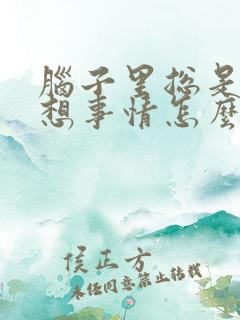 腦子里總是
想事情怎麼
侯正方
未经同意禁止转载